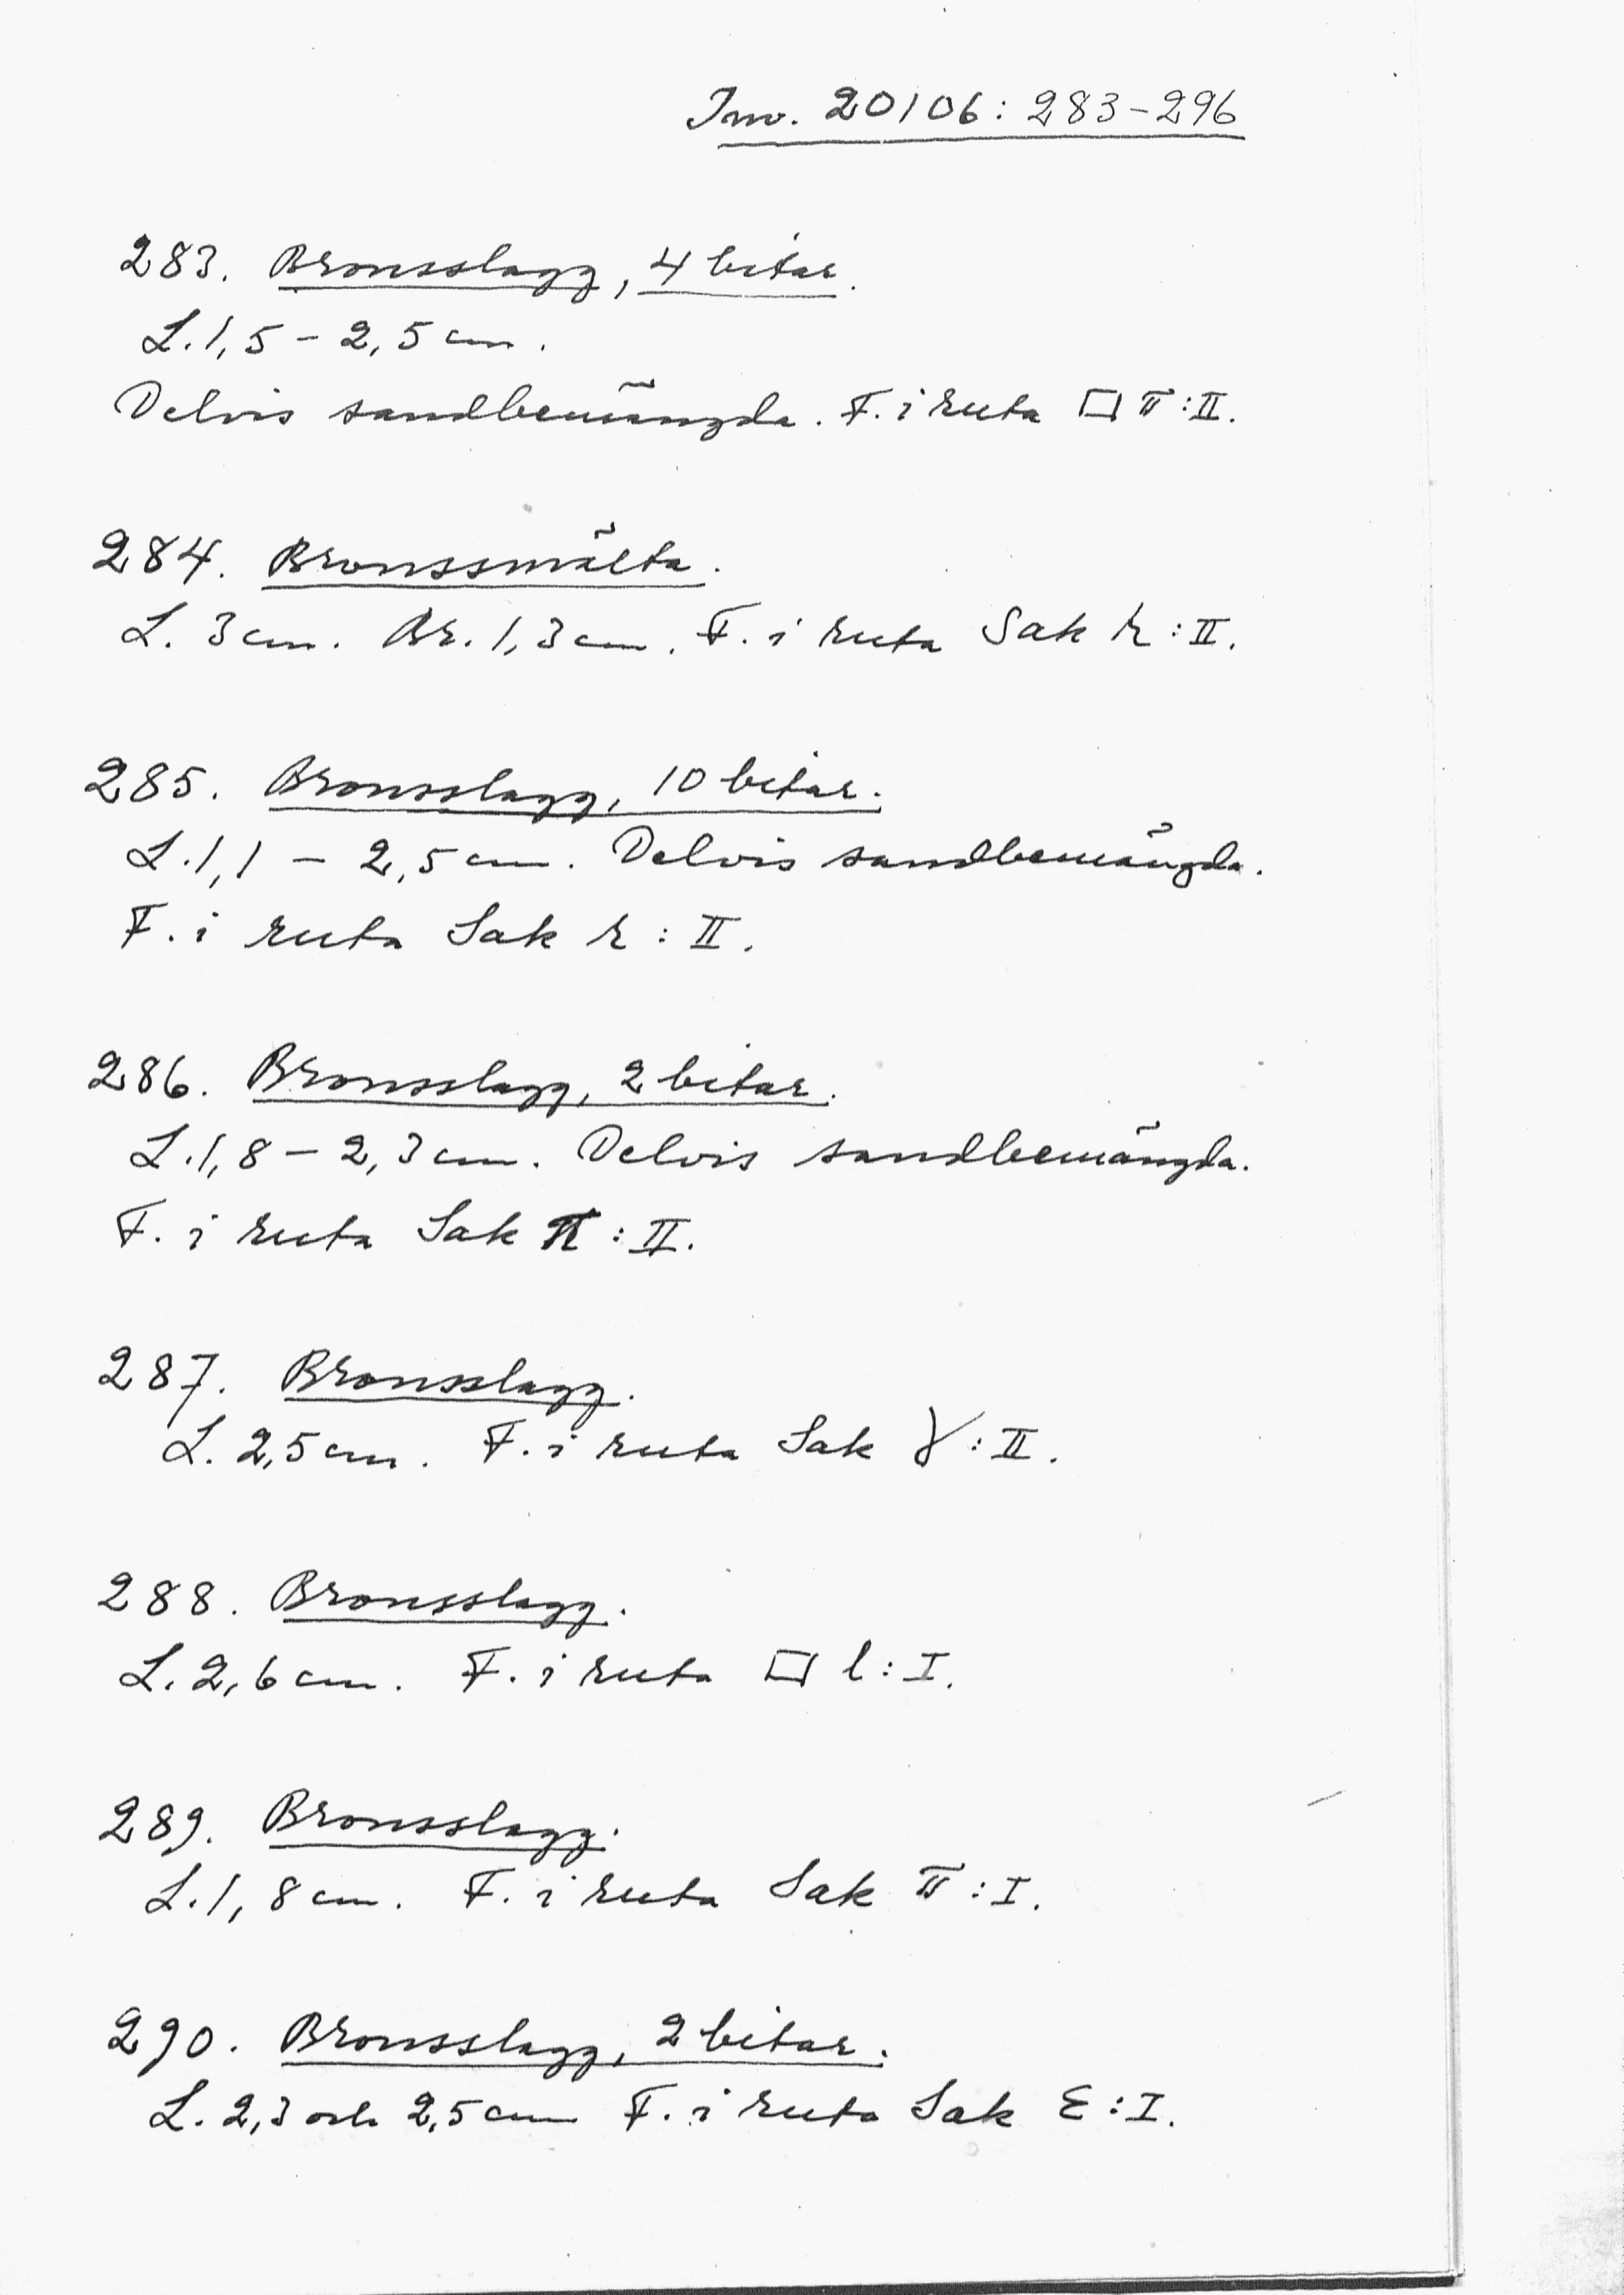 Inv. 20106: 283-296
283. Bronsslagg, 4 bitar.
L. 1,5 - 2,5 cm.
Delvis sandbemängda. F. i ruta □ π : II.
284. Bronssmälta.
L. 3 cm. Br. 1,3 cm. F. i ruta Sak r : II.
285. Bronsslagg, 10 bitar.
L. 1,1 - 2,5 cm. Delvis sandbemängda.
F. i ruta Sak r : II.
286. Bronsslagg, 2 bitar.
L. 1,8 - 2,3 cm. Delvis sandbemängda.
F. i ruta Sak π : II.
287. Bronsslagg.
L. 2,5 cm. F. i ruta Sak γ : II.
288. Bronsslagg.
L. 2,6 cm. F. i ruta □ l : I.
289. Bronsslagg.
L. 1,8 cm. F. i ruta Sak π : I.
290. Bronsslagg, 2 bitar.
L. 2,3 och 2,5 cm F. i ruta Sak ε : I.